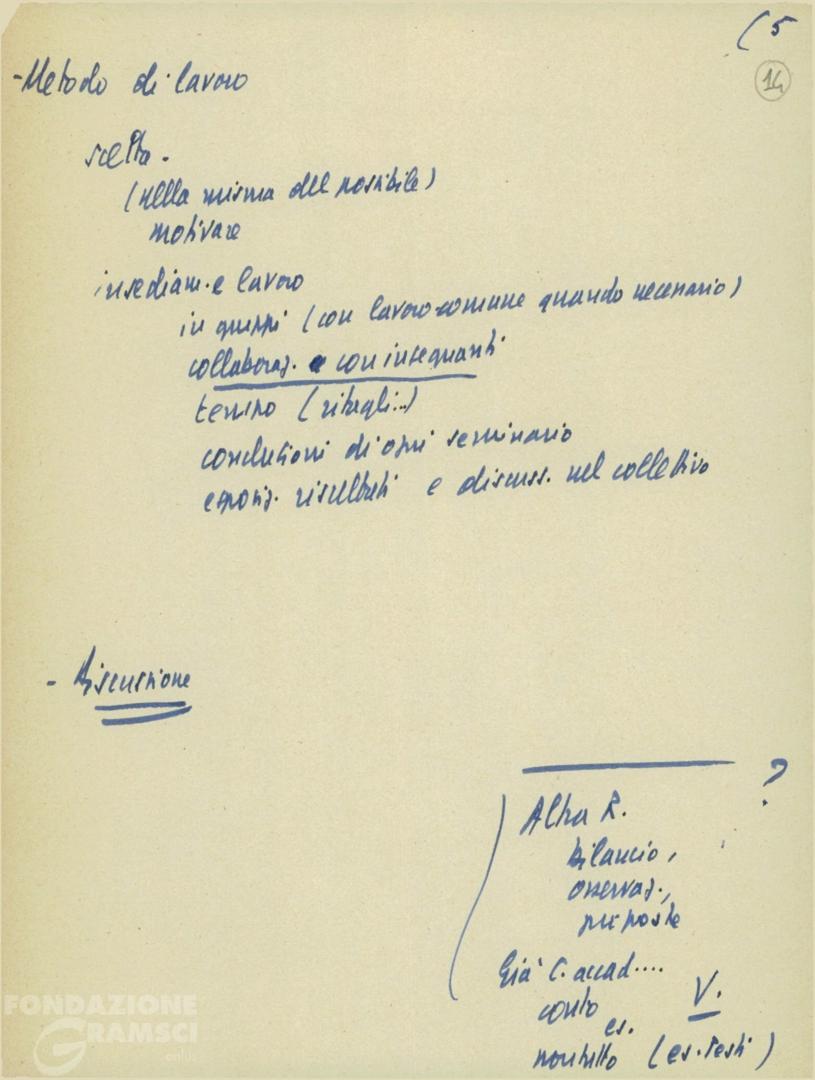 ( 5
14
- Metodo di lavoro
scelta.
(nella misura del possibile)
motivare
insediam. e lavoro
in gruppi (con lavoro comune quando necessario)
collaboraz. con insegnanti
(ritagli...)
conclusioni di ogni seminario
esposiz. risultati e discuss. nel collettivo
- Discussione
?
Altra R.
bilancio,
osservaz.,
proposte
Già C. accad....
conto
V.
es.
(es. testi)
FONDAZIONE
GRAMSCI
onlus